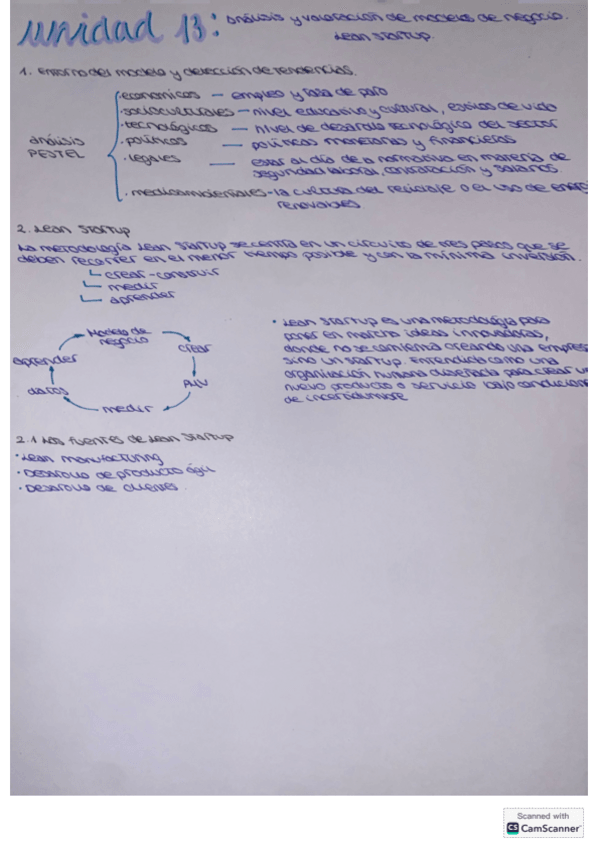 unidad 13: análisis y valoración de modelos de negocio.
Lean Startup.
1. Entorno del modelo y detección de tendencias.
análisis PESTEL
· económicos — empleo y tasa de paro
· socioculturales — nivel educativo y cultural, estilos de vida
· tecnológicos — nivel de desarrollo tecnológico del sector
· políticos — políticas monetarias y financieras
· legales — estar al día de la normativa en materia de
seguridad laboral, contratación y salarios.
· medioambientales - la cultura del reciclaje o el uso de energ
renovables
2. Lean Startup
La metodología Lean Startup se centra en un circuito de tres pasos que se
deben recorrer en el menor tiempo posible y con la mínima inversión.
crear-construir
medir
aprender
Modelo de
negocio
crear
medir
datos
aprender
· Lean Startup es una metodología para
poner en marcha ideas innovadoras,
donde no se comienza creando una empres
sino un startup. Entendida como una
organización humana diseñada para crear un
nuevo producto o servicio bajo condicione
de incertidumbre
2.1 Las fuentes de Lean Startup
· Lean manufacturing
· Desarrollo de producto ágil
· Desarrollo de clientes
Scanned with
CS CamScanner